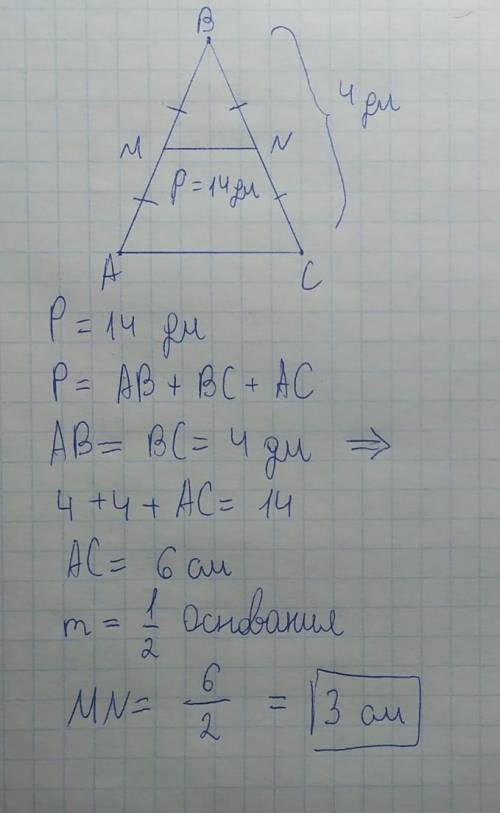 B
4 дм
M N
P = 14 дм
A C
P = 14 дм
P = AB + BC + AC
AB = BC = 4 дм ⇒
4 + 4 + AC = 14
AC = 6 см
m = 1/2 Основания
MN = 6/2 = 3 см